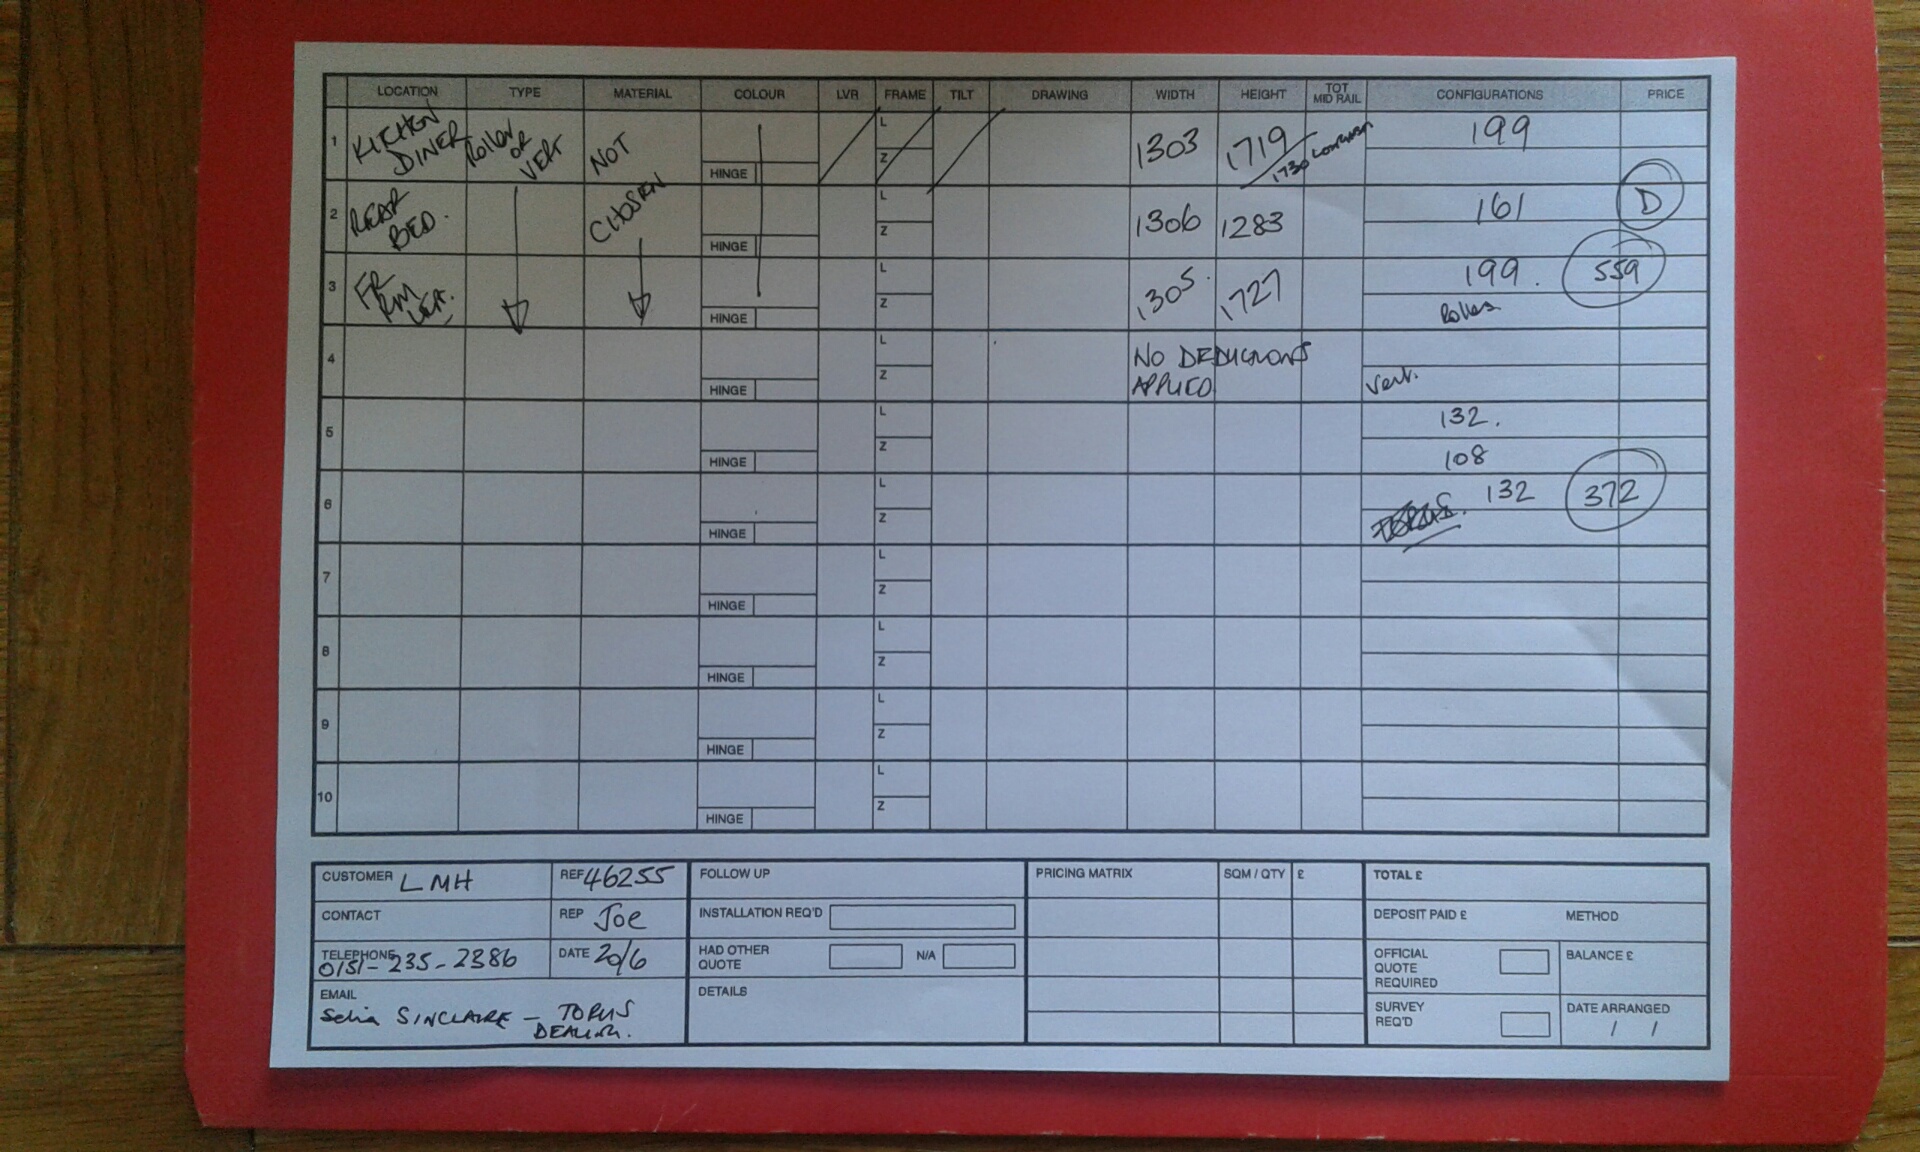 LOCATION TYPE MATERIAL COLOUR LVR FRAME TILT DRAWING WIDTH HEIGHT TOT MID RAIL CONFIGURATIONS PRICE
1 KITCHEN DINER Roller OR VERT NOT HINGE L Z 1303 1719 1730 199
2 REAR BED. CHOSEN HINGE L Z 1306 1283 161 D
3 FR RM HINGE L Z 1305 1727 199. 559
Roller
4 HINGE L Z NO DEDUCTIONS APPLIED Vert.
5 HINGE L Z 132.
108
6 HINGE L Z 132 372
7 HINGE L Z
8 HINGE L Z
9 HINGE L Z
10 HINGE L Z
CUSTOMER LMH REF 46255
CONTACT REP Joe
TELEPHONE 0151-235-2386 DATE 20/6
EMAIL
SINCLAIRE - TORUS
FOLLOW UP
INSTALLATION REQ'D
HAD OTHER QUOTE N/A
DETAILS
PRICING MATRIX SQM / QTY £
TOTAL £
DEPOSIT PAID £ METHOD
OFFICIAL QUOTE REQUIRED BALANCE £
SURVEY REQ'D DATE ARRANGED
/ /